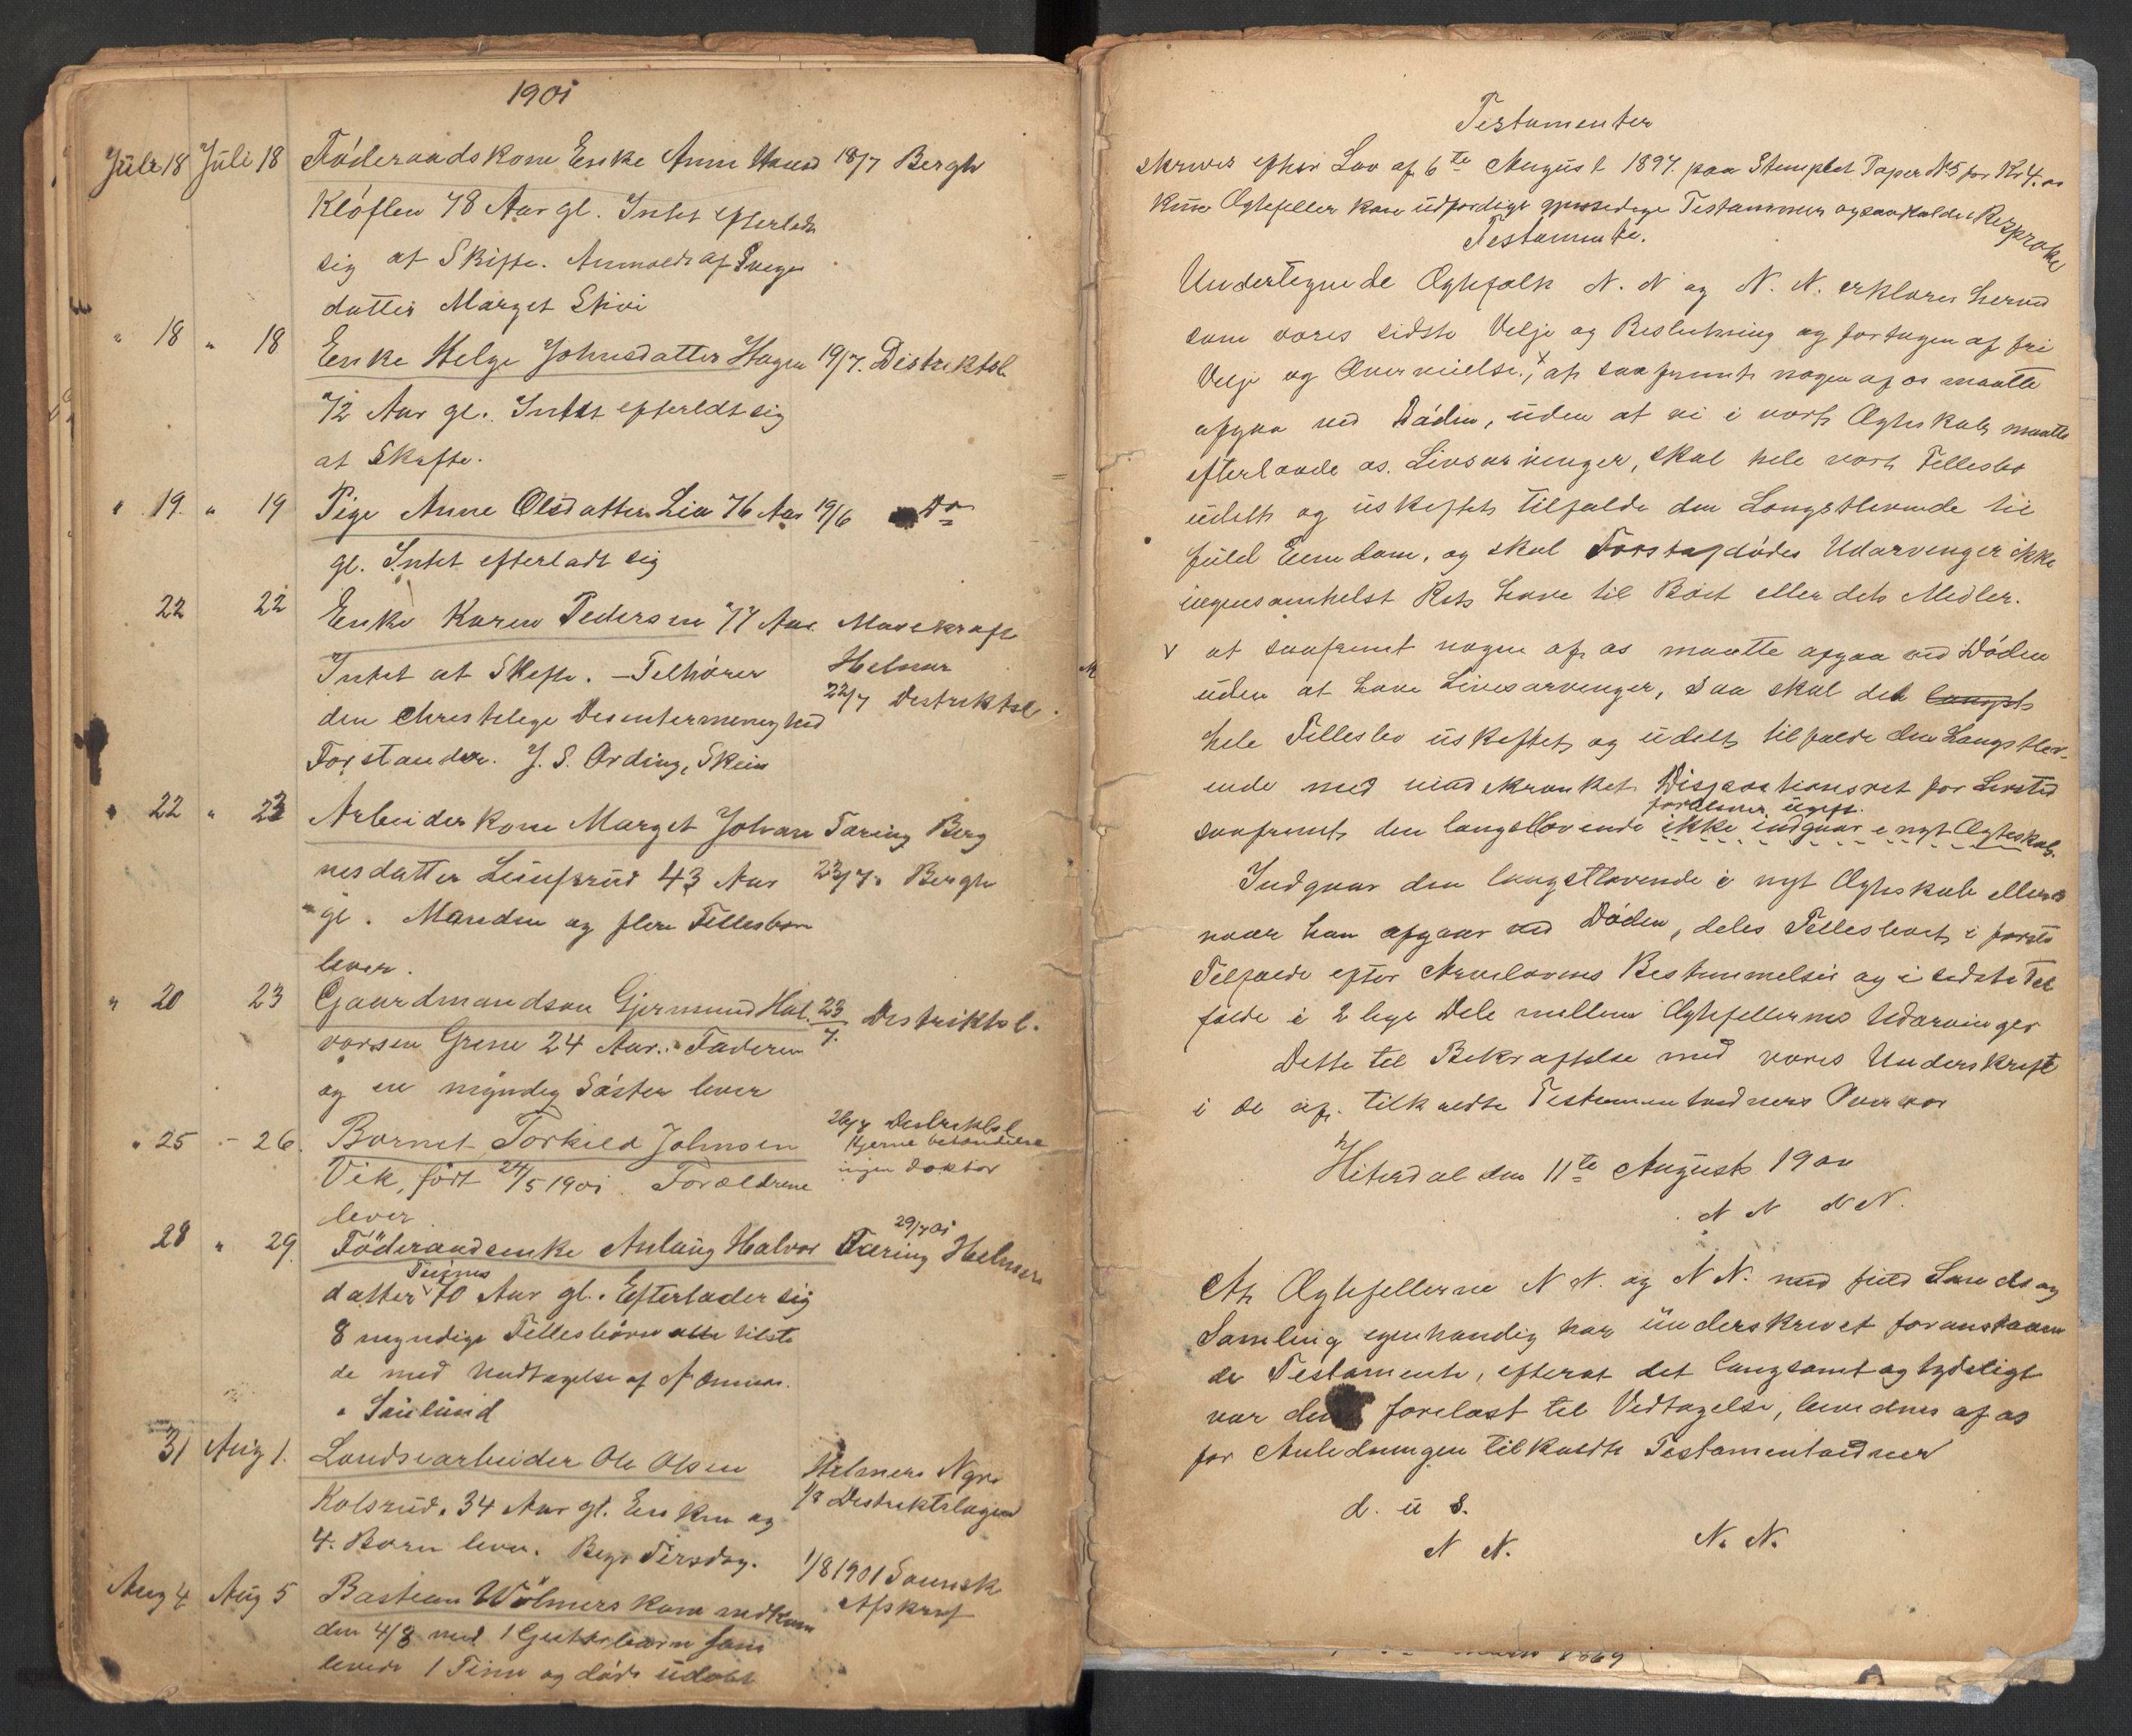 1901
Juli 18 Juli 18 Föderaadskone Enke Anne 18/7 Bergh
Klöflen 78 Aar gl. Intet efterladt
sig at Skifte. Anmeldt af Sviger
datter Marget Skoi
" 18 " 18 Enke Helge Johnsdatter Hagen 19/7. Distriktsl.
72 Aar gl. Intet efterladt sig
at Skifte.
" 19 " 19 Pige Anne Olsdatter Lia 76 Aar 19/6 Do
gl. Intet efterladt sig
22 22 Enke Karen Pedersen 77 Aar Mavekræft
Intet at Skifte. - Telhörer Helmer
den Christelige Desintermenighed 22/7 Destriktsl.
Forstander. J. S. Ording, Skein
" 22 " 23 Arbeiderkone Marget Johan Tæring Berg
nesdatter 43 Aar 23/7. Bergh
gl. Manden og flere Fellesbørn
lever.
" 20 23 Gaardmandsøn Gjermund Hal. 23/7. Destriktsl.
vorsen Grene 24 Aar. Faderen
og en myndig Søster lever
" 25 - 26. Barnet Torkild Johnsen 26/7 Destriktsl
Vik, født 24/5 1901. Forældrene ingen Doktor
lever
28 " 29. Föderaadsenke Anlaug Halvor 29/7 01 Tæring Helmers
datter Teines 70 Aar gl. Efterlader sig
8 myndige Fellesbörn alle tilste
de med Undtagelse af
" Sauland
31 Aug 1. Landsearbeider Ole Olsen Helmers
Kolsrud. 34 Aar gl. Enken og 1/8 Destriktslægen
4. Børn lever. Begr Tirsdag.
Aug 4 Aug 5 Bastian Wölners kone nedkom 1/8 1901 Sounsk
den 4/8 med 1 Guttebarn som Afskrift
levede 1 Time og døde udøbt
Testamenter
skrives efter Lov af 6te August 1897. paa Stemplet Papir No 5 for Kr 4.00
Kun Ægtefeller kan udfærdige gjensedige Testamenter ogsaa kaldet Resiproke
Testamente.
Undertegnede Ægtefolk N. N og N. N. erklærer herved
som vores sidste Velje og Beslutning og fortagen af fri
Velje og Overveielse, x at saafremt nogen af os maatte
afgaa ved Döden, uden at vi i vort Ægteskab maatte
efterlade os Livsarvinger, skal hele vort Fellesbo
udelt og uskeftet tilfalde den Længstlevende til
fuld Eiendom, og skal Förstafdödes Udarvenger ikke
nogensomhelst Ret have til Boet eller dets Medler.
v at saafremt nogen af os maatte afgaa ved Döden
uden at have Livesarvenger, saa skal det længst
hele Fellesbo uskeftet og udelt tilfalde den Længstlev-
ende med uindskrænket Disposetionsret for Livstid
forbliver ugift.
saafremt den længstlevende ikke indgaar i nyt Ægteskab.
Indgaar den længstlevende i nyt Ægteskab eller
naar han afgaar ved Döden, deles Fellesboet i første
Telfælde efter Arvelovens Bestemmelser og i sedste Tel
fælde i 2 lige Dele mellem Ægtefellernes Udarvinger
Dette til Bekræftelse med vores Underskrift
i de af. tilkaldte Testamentvidners Overvær
Hiterdal den 11te August 1900
N N N N.
At Ægtefellerne N N. og N N. med fuld Sands og
Samling egenhændig har underskrevet foranstaaen
de Testamente, efterat det langsomt og tydeligt
var dem forelæst til Vedtagelse, bevidnes af os
for Anledningen tilkaldte Testamentvidner
d. u s.
N N. N. N.
1869